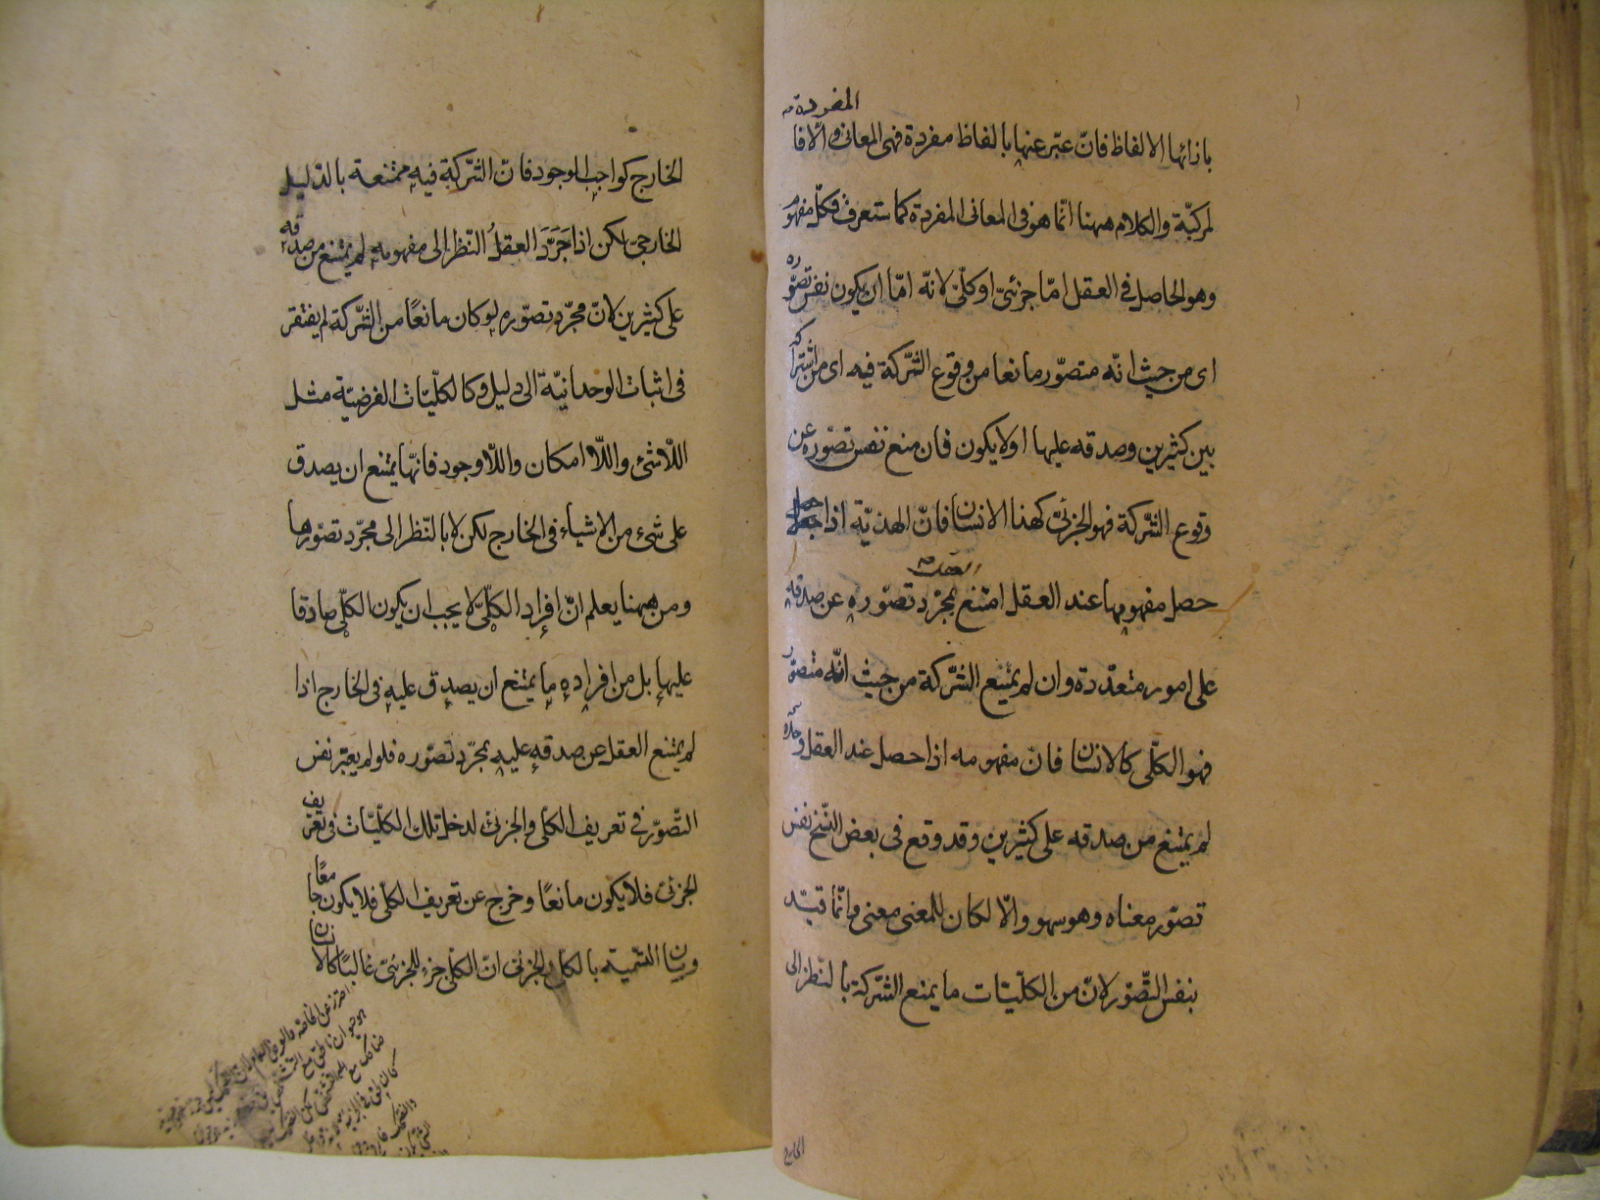 المفردة
بازائها الالفاظ فانّ عبّر عنها بالفاظ مفردة فهى المعانى والّا فا
لمركبّة والكلام ههنا انّما هو فى المعانى المفردة كما ستعرف فكلّ مفهوم
وهو الحاصل فى العقل امّا جزئىّ او كلّىّ لانّه امّا ان يكون نفس تصوّره
اى من حيث انّه متصوّر مانعا من وقوع الشّركة فيه اى من اشتراكه
بين كثيرين وصدقه عليها اولا يكون فان منع نفس تصوّره عن
وقوع الشّركة فهو الجزئىّ كهذا الانسان فانّ الهذيّة اذا
حصل مفهومها عند العقل امتنع بمجرّد تصوّره عن صدقه
على امور متعدّدة وان لم يمتنع الشّركة من حيث انّه متصوّر
فهو الكلّى كالانسان فانّ مفهومه اذا حصل عند العقل وحده
لم يمتنع من صدقه على كثيرين وقد وقع فى بعض النّسخ نفس
تصوّر معناه وهو سهو والّا لكان للمعنى معنى وانّما قيّد
بنفس التّصوّر لانّ من الكلّيّات ما يمنع الشّركة بالنّظر الى
الخارج
الخارج كواجب الوجود فانّ الشّركة فيه ممتنعة بالدّليل
الخارجىّ لكن اذا جَرَّدَ العقلُ النّظر الى مفهومه لم يمتنع من صدقه
على كثيرين لانّ مجرّد تصوّره لو كان مانعًا من الشّركة لم يفتقر
فى اثبات الوحدانيّة الى دليل وكالكلّيّات الفرضيّة مثل
اللّاشئ واللّاامكان واللّاوجود فانّها يمتنع ان يصدق
على شئ من الاشياء فى الخارج لكن لا بالنّظر الى مجرّد تصوّرها
ومن ههنا يعلم انّ افراد الكلّىّ لا يجب ان يكون الكلّى صادقا
عليها بل من افراده ما يمتنع ان يصدق عليه فى الخارج اذا
لم يمتنع العقل عن صدقه عليه بمجرّد تصوّره فلو لم يعتبر نفس
التّصوّر فى تعريف الكلّى والجزئى لدخل تلك الكلّيّات فى تعريف
الجزئى فلا يكون مانعًا وخرج عن تعريف الكلّى فلا يكون جامعًا
وبيان التّسمية بالكلّى والجزئى انّ الكلّى جزء للجزئىّ غالبًا كالانسان